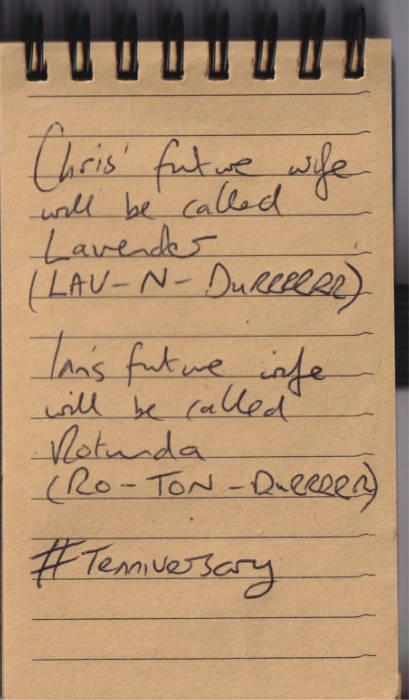 Chris' future wife
will be called
Lavender
(LAV-N-DuRRRRRR)
Ian's future wife
will be called
Rotunda
(RO-TON-DuRRRRR)
#Tenniversary